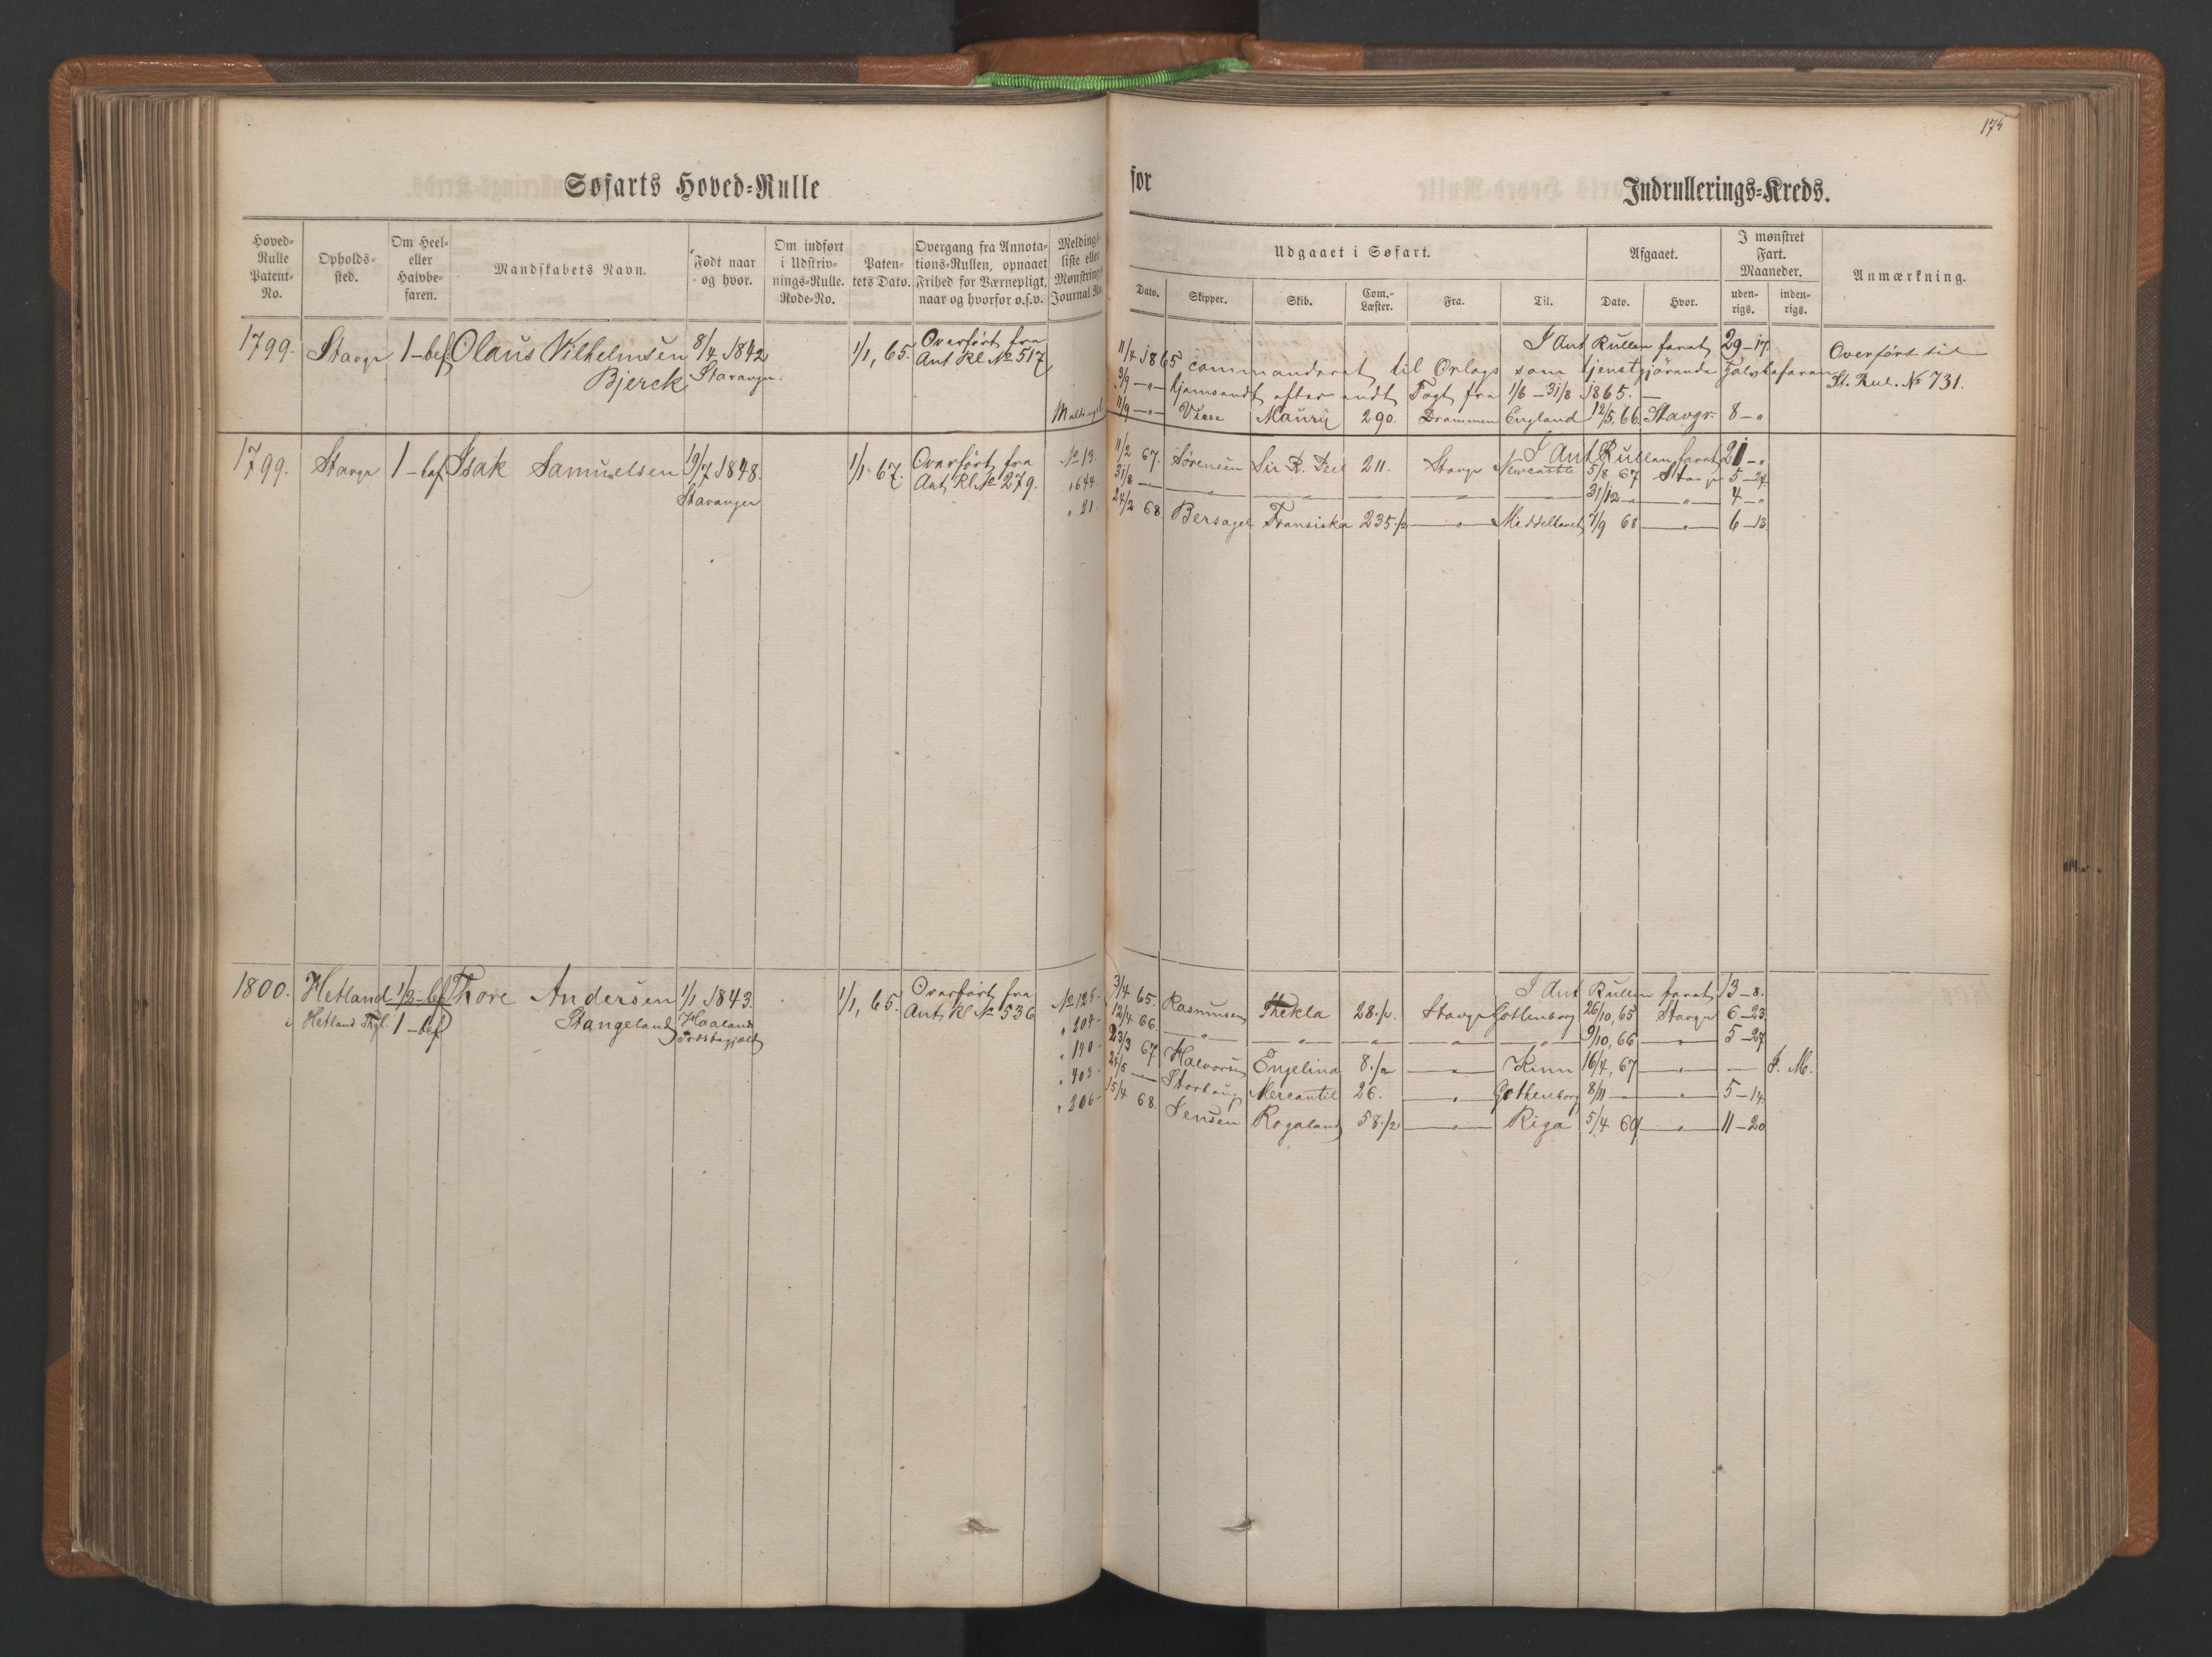 175
Søfarts Hoved-Rulle for Indrullerings-Kreds.
Hoved-Rulle Patent-No. Opholds-sted. Om Heel- eller Halvbe-faren. Mandskabets Navn. Født naar og hvor. Om indført i Udskriv-nings-Rulle. Rode-No. Paten-tets Dato. Overgang fra Annota-tions-Rullen, opnaaet Frihed for Værnepligt, naar og hvorfor o.s.v. Meldings-liste eller Mønstrings Journal No.
Udgaaet i Søfart. Afgaaet. I mønstret Fart. Maaneder. Anmærkning.
Dato. Skipper. Skib. Com.-Læster. Fra. Til. Dato. Hvor. uden-rigs. inden-rigs.
1799. Stavgr 1-bef. Olaus Vilhelmsen 8/4 1842 1/1, 65. Overført fra I Ant Rullen faret 29-17. Overført til
Bjerck Stavanger. Ant Rl. No 517 11/4 1865 commanderet til Orlogs som tjenstgjørende St. Rul. No 731.
3/9 -"- hjemsendt efter endt Togt fra 1/6 - 31/8 1865.
11/9 -"- Maury 290. Drammen England 12/5, 66. Stavgr. 8-"
1799. Stavgr 1-bef. Isak Samuelsen 19/7 1848. 1/1 67. Overført fra I Ant Rullen faret 21-"
Stavanger Ant. Rl. No 279. No 13. 11/2 67. Sørensen Sir R. Peel 211. Stavgr Newcastle 5/8 67 Stavgr 5-24
" 644. 31/8 - " 31/12 - " 4-"
" 21. 24/2 68 Bersagel Fransiska 235./2 " Middelhavet 7/9 68 " 6-13
1800. Hetland 1/2-bef Thore Andersen 1/1 1843. 1/1, 65. Overført fra I Ant Rullen faret 13-8.
i Hetland Thgl. 1-bef Stangeland Haaland Ant. Rl No 536 No 125. 3/4 65. Rasmussen Thekla 28./2. Stavgr Gottenborg 26/10, 65 Stavgr 6-23
Præstegjæld " 204- 12/4 66. " " " " " 9/10, 66 " 5-27
" 140- 23/3 67 Halvorsen Engelina 8./2 " Kinn 16/4, 67 " - F. M.
" 403- 24/5 - Storhaug Mercantil 26. " Gothenborg 8/11 - " 5-14
" 206- 15/4 68. Jensen Rogaland 58./2 " Riga 5/4 69 " 11-20